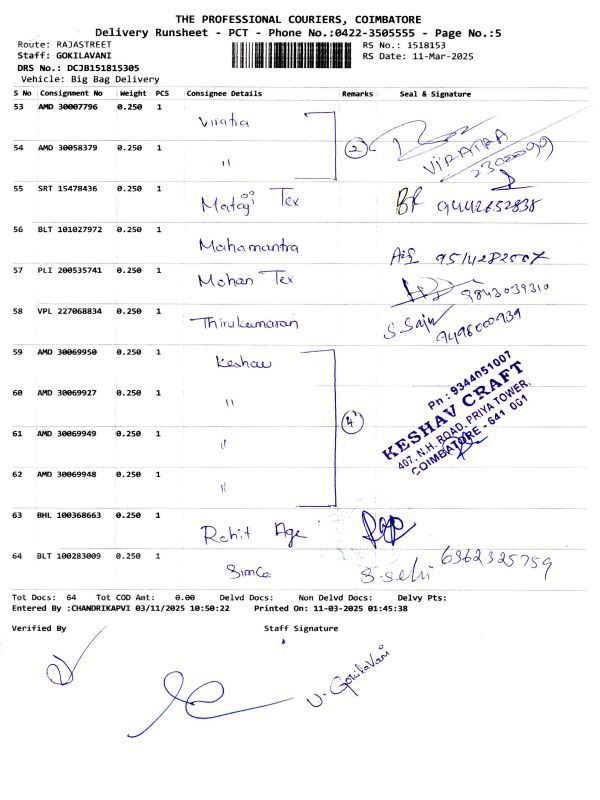 THE PROFESSIONAL COURIERS, COIMBATORE
Delivery Runsheet - PCT - Phone No.:0422-3505555 - Page No.:5
Route: RAJASTREET
RS No.: 1518153
Staff: GOKILAVANI
RS Date: 11-Mar-2025
DRS No.: DCJB151815305
Vehicle: Big Bag Delivery
S No Consignment No Weight PCS Consignee Details Remarks Seal & Signature
53 AMD 30007796 0.250 1 Viratra
2 VIRATRA
54 AMD 30058379 0.250 1 "
55 SRT 15478436 0.250 1 Mataji Tex 9442652838
56 BLT 101027972 0.250 1 Mahamantra
57 PLI 200535741 0.250 1 Mohan Tex 9843039310
58 VPL 227068834 0.250 1 Thirukumaran S.Saju
59 AMD 30069950 0.250 1 Keshav
60 AMD 30069927 0.250 1 "
4
Pn : 9344051007
KESHAV CRAFT
407, N.H. ROAD, PRIYA TOWER,
COIMBATORE - 641 001
61 AMD 30069949 0.250 1 "
62 AMD 30069948 0.250 1 "
63 BHL 100368663 0.250 1 Rohit Age
64 BLT 100283009 0.250 1 Simco S.selvi 6362325759
Tot Docs: 64 Tot COD Amt: 0.00 Delvd Docs: Non Delvd Docs: Delvy Pts:
Entered By :CHANDRIKAPVI 03/11/2025 10:50:22 Printed On: 11-03-2025 01:45:38
Verified By Staff Signature
U. Gokilavani